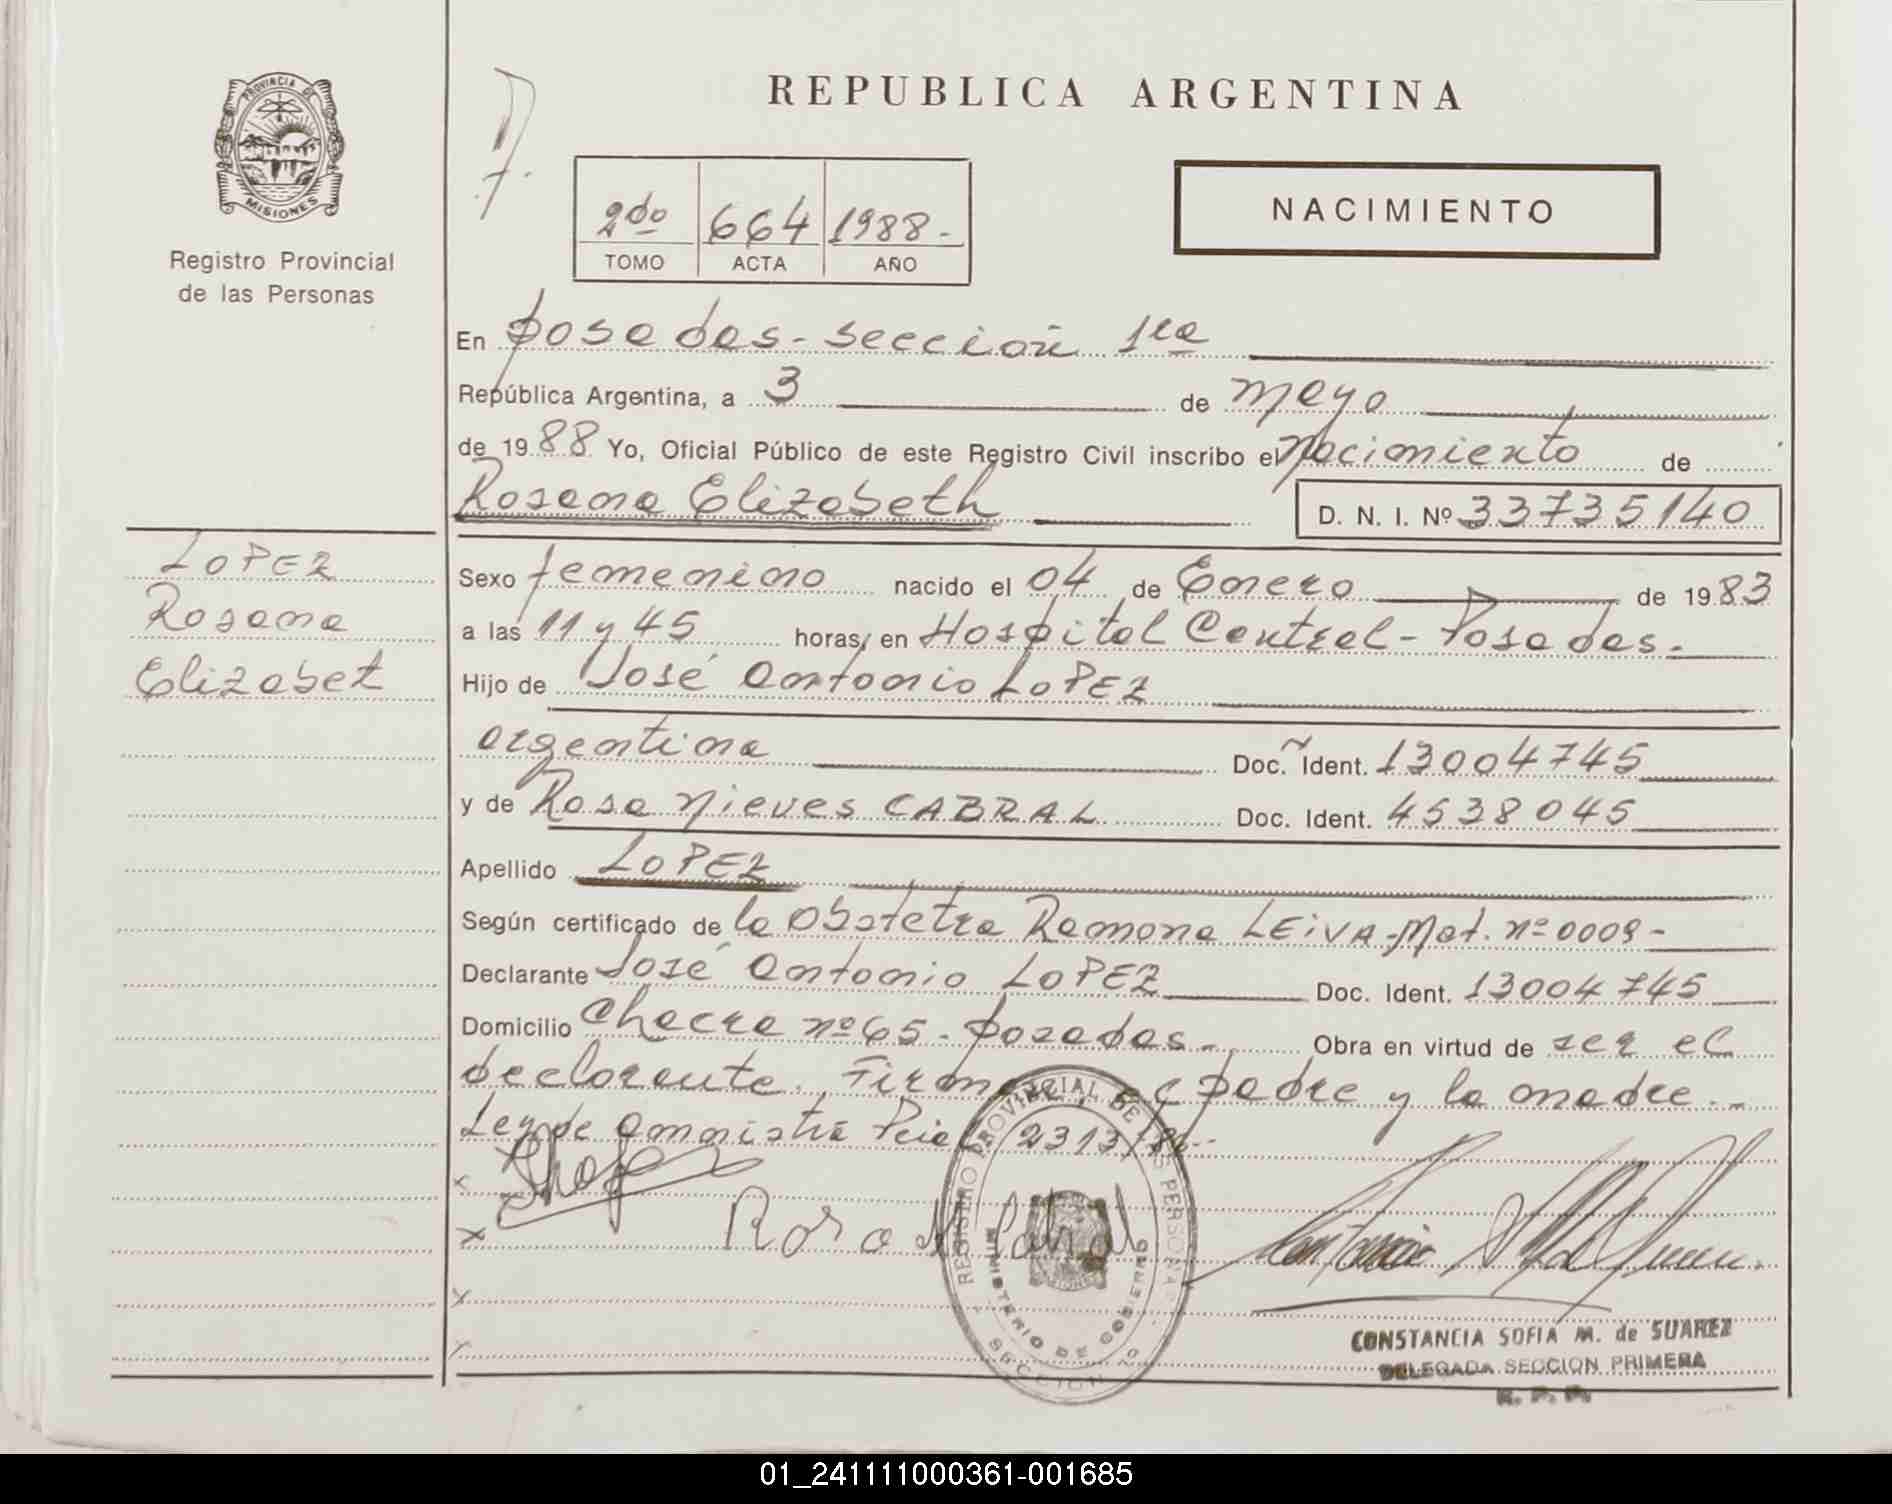 PROVINCIA DE
MISIONES
Registro Provincial
de las Personas
REPUBLICA ARGENTINA
2do 664 1988.-
TOMO ACTA AÑO
NACIMIENTO
En posadas - sección 1ra
República Argentina, a 3 de mayo
de 1988 Yo, Oficial Público de este Registro Civil inscribo el Nacimiento de
Rosana Elizabeth D. N. I. Nº 33735140
LOPEZ
Rosana
Elizabet
Sexo femenino nacido el 04 de Enero de 1983
a las 11 y 45 horas, en Hospital Central - Posadas.-
Hijo de José Antonio LOPEZ
argentina Doc. Ident. 13004745
y de Rosa Nieves CABRAL Doc. Ident. 4538045
Apellido LOPEZ
Según certificado de la Obstetra Ramona LEIVA - Mat. nº 0009 -
Declarante José Antonio LOPEZ Doc. Ident. 13004745
Domicilio Chacra nº 65 - posadas.- Obra en virtud de ser el
declarante. Firman, el padre y la madre.-
Ley de amnistía Pcial 2313/86.-
Rosa N Cabral
REGISTRO PROVINCIAL DE LAS PERSONAS
MINISTERIO DE GOBIERNO
SECCION
CONSTANCIA SOFIA M. de SUAREZ
DELEGADA SECCION PRIMERA
R. P. P.
01_241111000361-001685